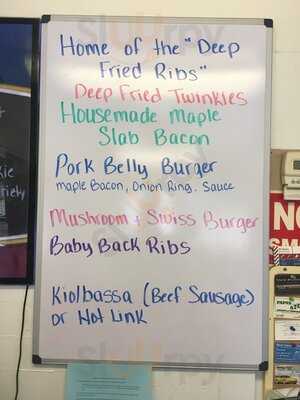 Home of the "Deep
Fried Ribs"
Deep Fried Twinkies
Housemade Maple
Slab Bacon
Pork Belly Burger
Maple Bacon, Onion Ring, Sauce
Mushroom + Swiss Burger
Baby Back Ribs
Kiolbassa (Beef Sausage)
or Hot Link
NO